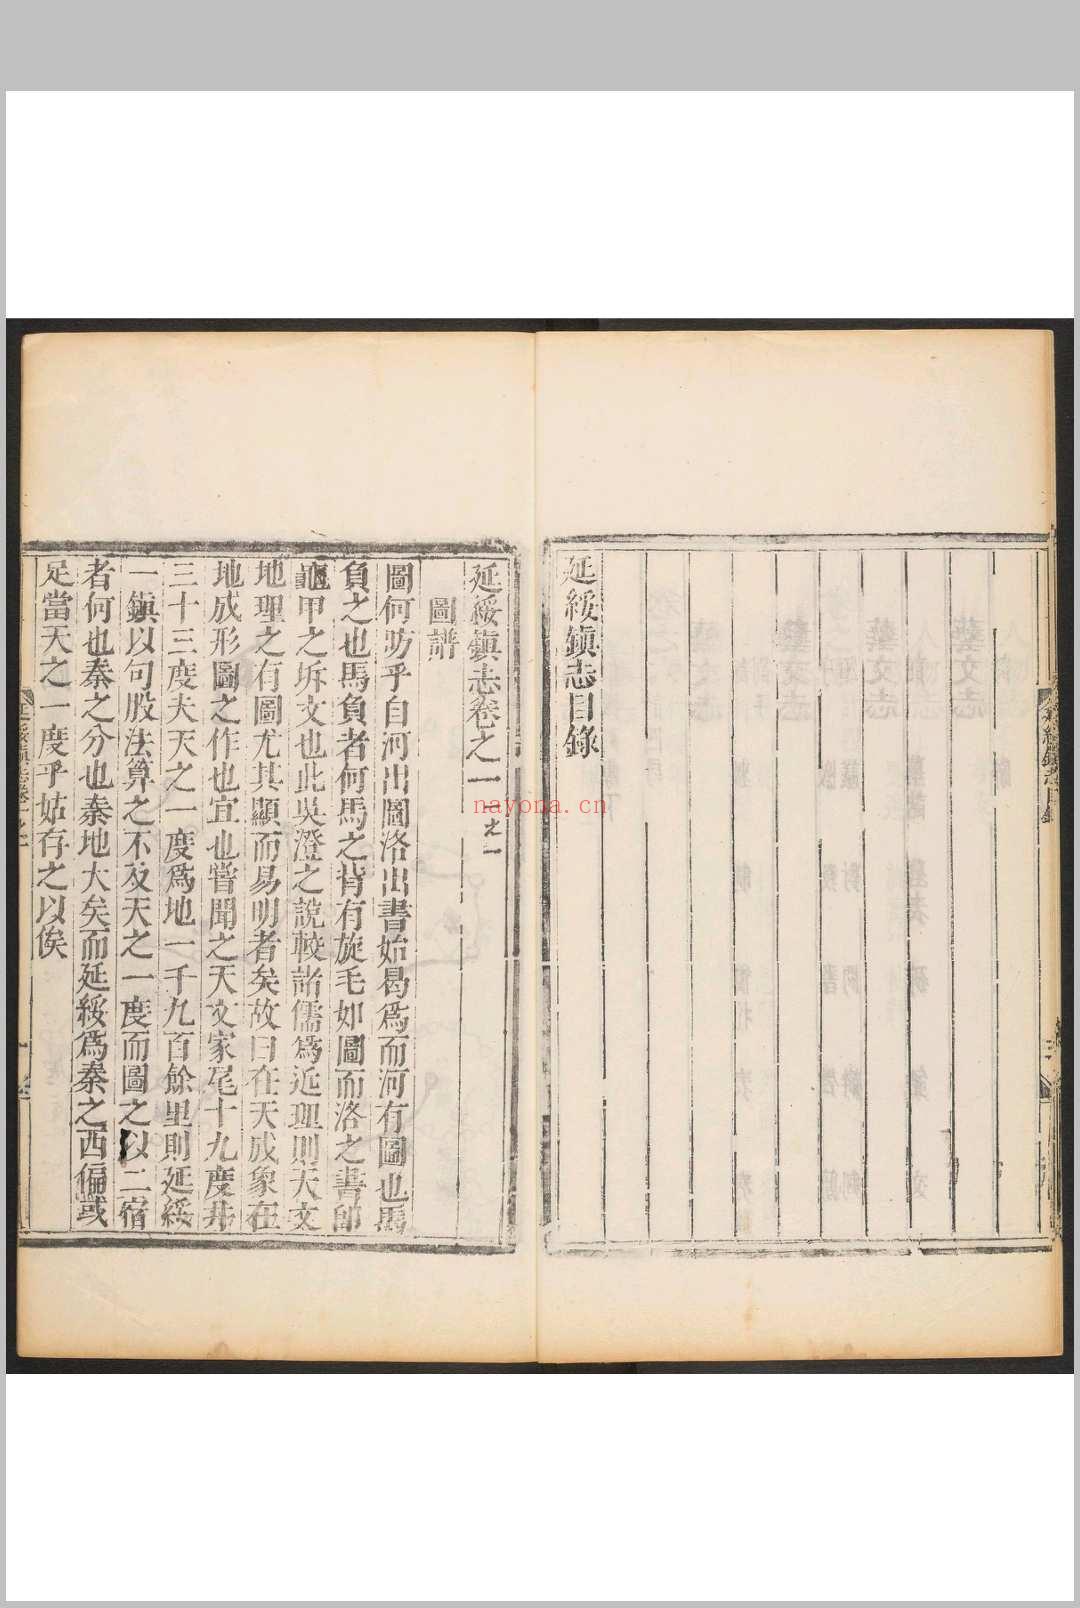 延綏鎮志目錄
延綏鎮志卷之一 一之一
圖譜
圖何昉乎自河出圖洛出書始曷爲而河有圖也馬
負之也馬負者何馬之背有旋毛如圖而洛之書卽
龜甲之坼文也此吳澄之說較諸儒爲近理則天文
地理之有圖尤其顯而易明者矣故曰在天成象在
地成形圖之作也宜也嘗聞之天文家尾十九度井
三十三度夫天之一度爲地一千九百餘里則延綏
一鎮以句股法算之不及天之一度而圖之以二宿
者何也秦之分也秦地大矣而延綏爲秦之西偏或
足當天之一度乎姑存之以俟
nayona.cn